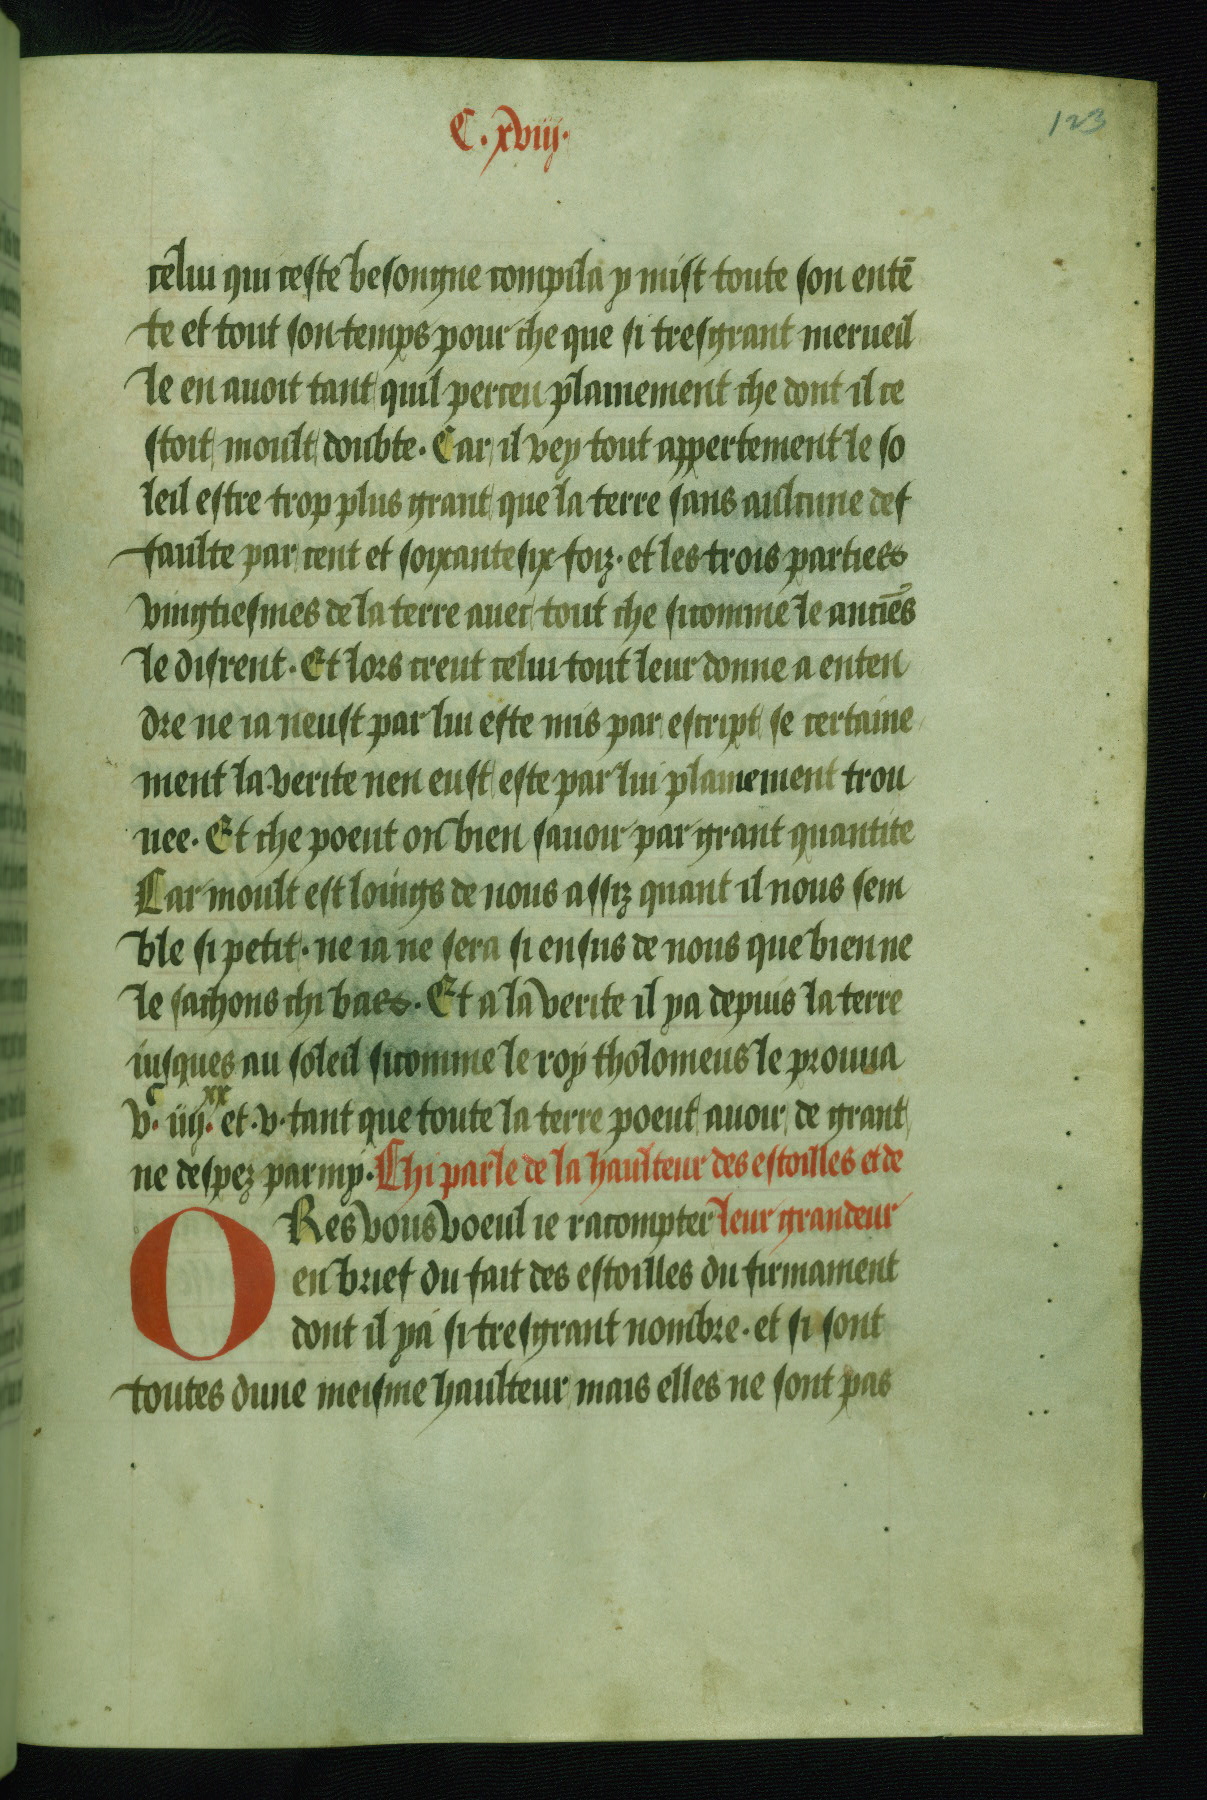 C. xviij.
123
celui qui ceste besongne compila y mist toute son entē
te et tout son temps pour che que si tresgrant merueil
le en auoit tant quil perceu plainement che dont il ce
stoit moult doubte. Car il vey tout appertement le so
leil estre trop plus grant que la terre sans aulcune def
faulte par cent et soixante six foiz. et les trois parties
vingtiesmes de la terre auec tout che sicomme le anciēs
le disrent. Et lors creut celui tout leur donne a enten
dre ne ia neust par lui este mis par escript se certaine
ment la verite nen eust este par lui plainement trou
uee. Et che poeut on bien sauoir par grant quantite
Car moult est loings de nous assiz quant il nous sem
ble si petit. ne ia ne sera si ensus de nous que bien ne
le sachons chi bass. Et a la verite il ya depuis la terre
iusques au soleil sicomme le roy tholomeus le prouua
v.ᶜ iiij.ˣˣ et .v. tant que toute la terre poeut auoir de grant
ne despez parmy. Chi parle de la haulteur des estoilles et de
ORes vous voeul ie racompter leur grandeur
en brief du fait des estoilles du firmament
dont il ya si tresgrant nombre. et si sont
toutes dune meisme haulteur mais elles ne sont pas